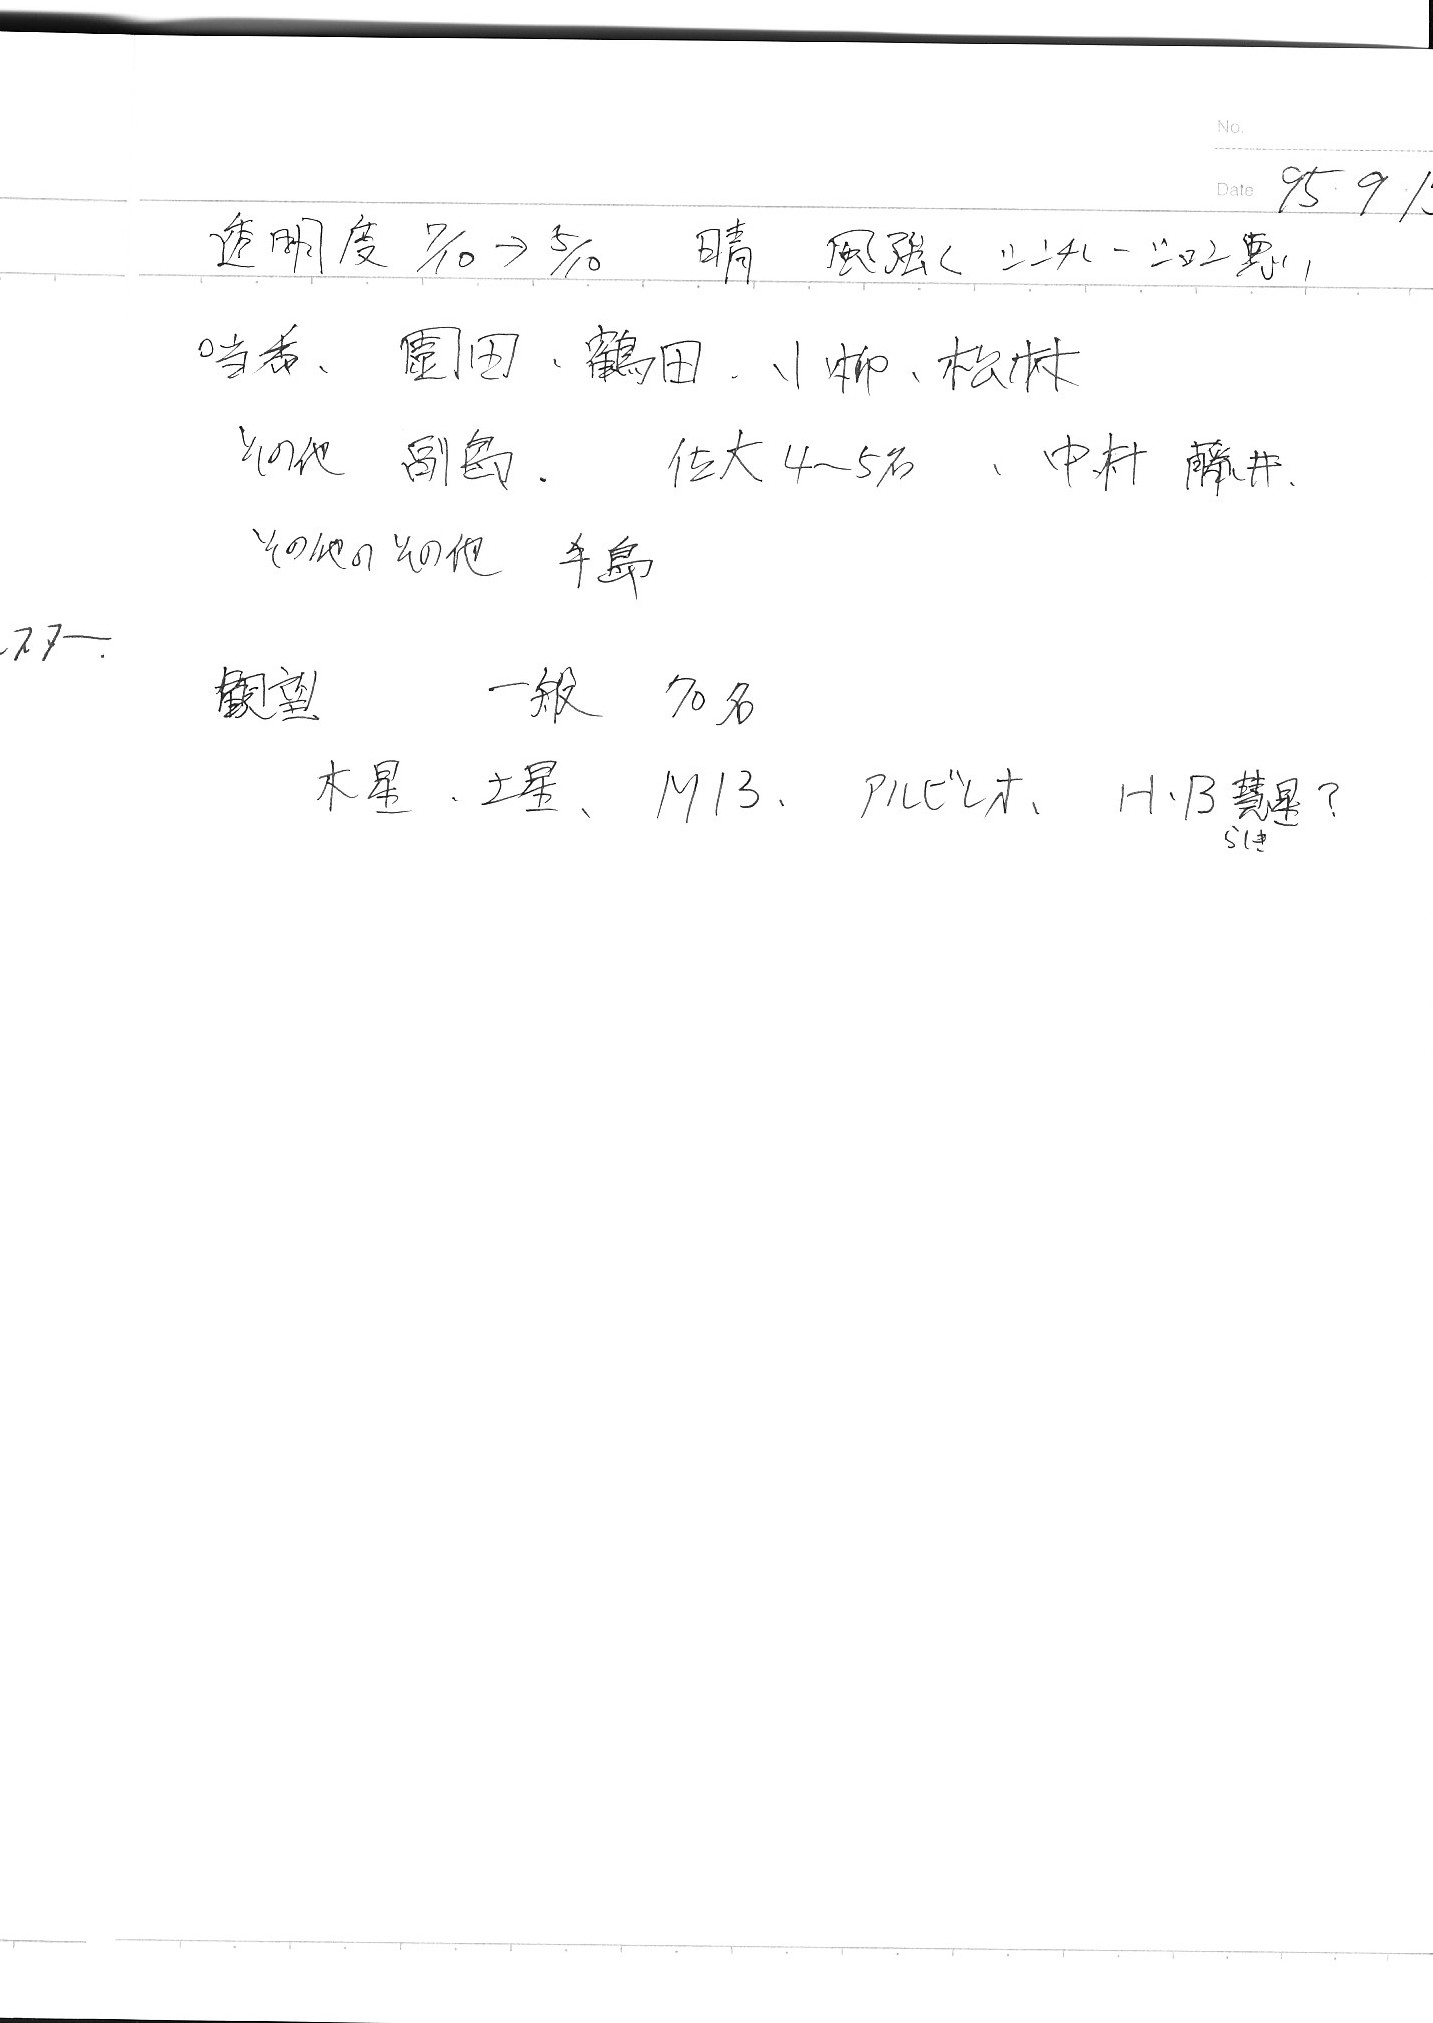 No.
Date 95.9.1
透明度 7/10→5/10 晴 風強く シンチレーション悪い
当番、園田、鶴田、小柳、松林
その他 副島. 佐大4〜5名、中村 藤井.
その他のその他 手島
スター.
観望 一般 70名
木星、土星、M13、アルビレオ、H・B彗星?
らしき